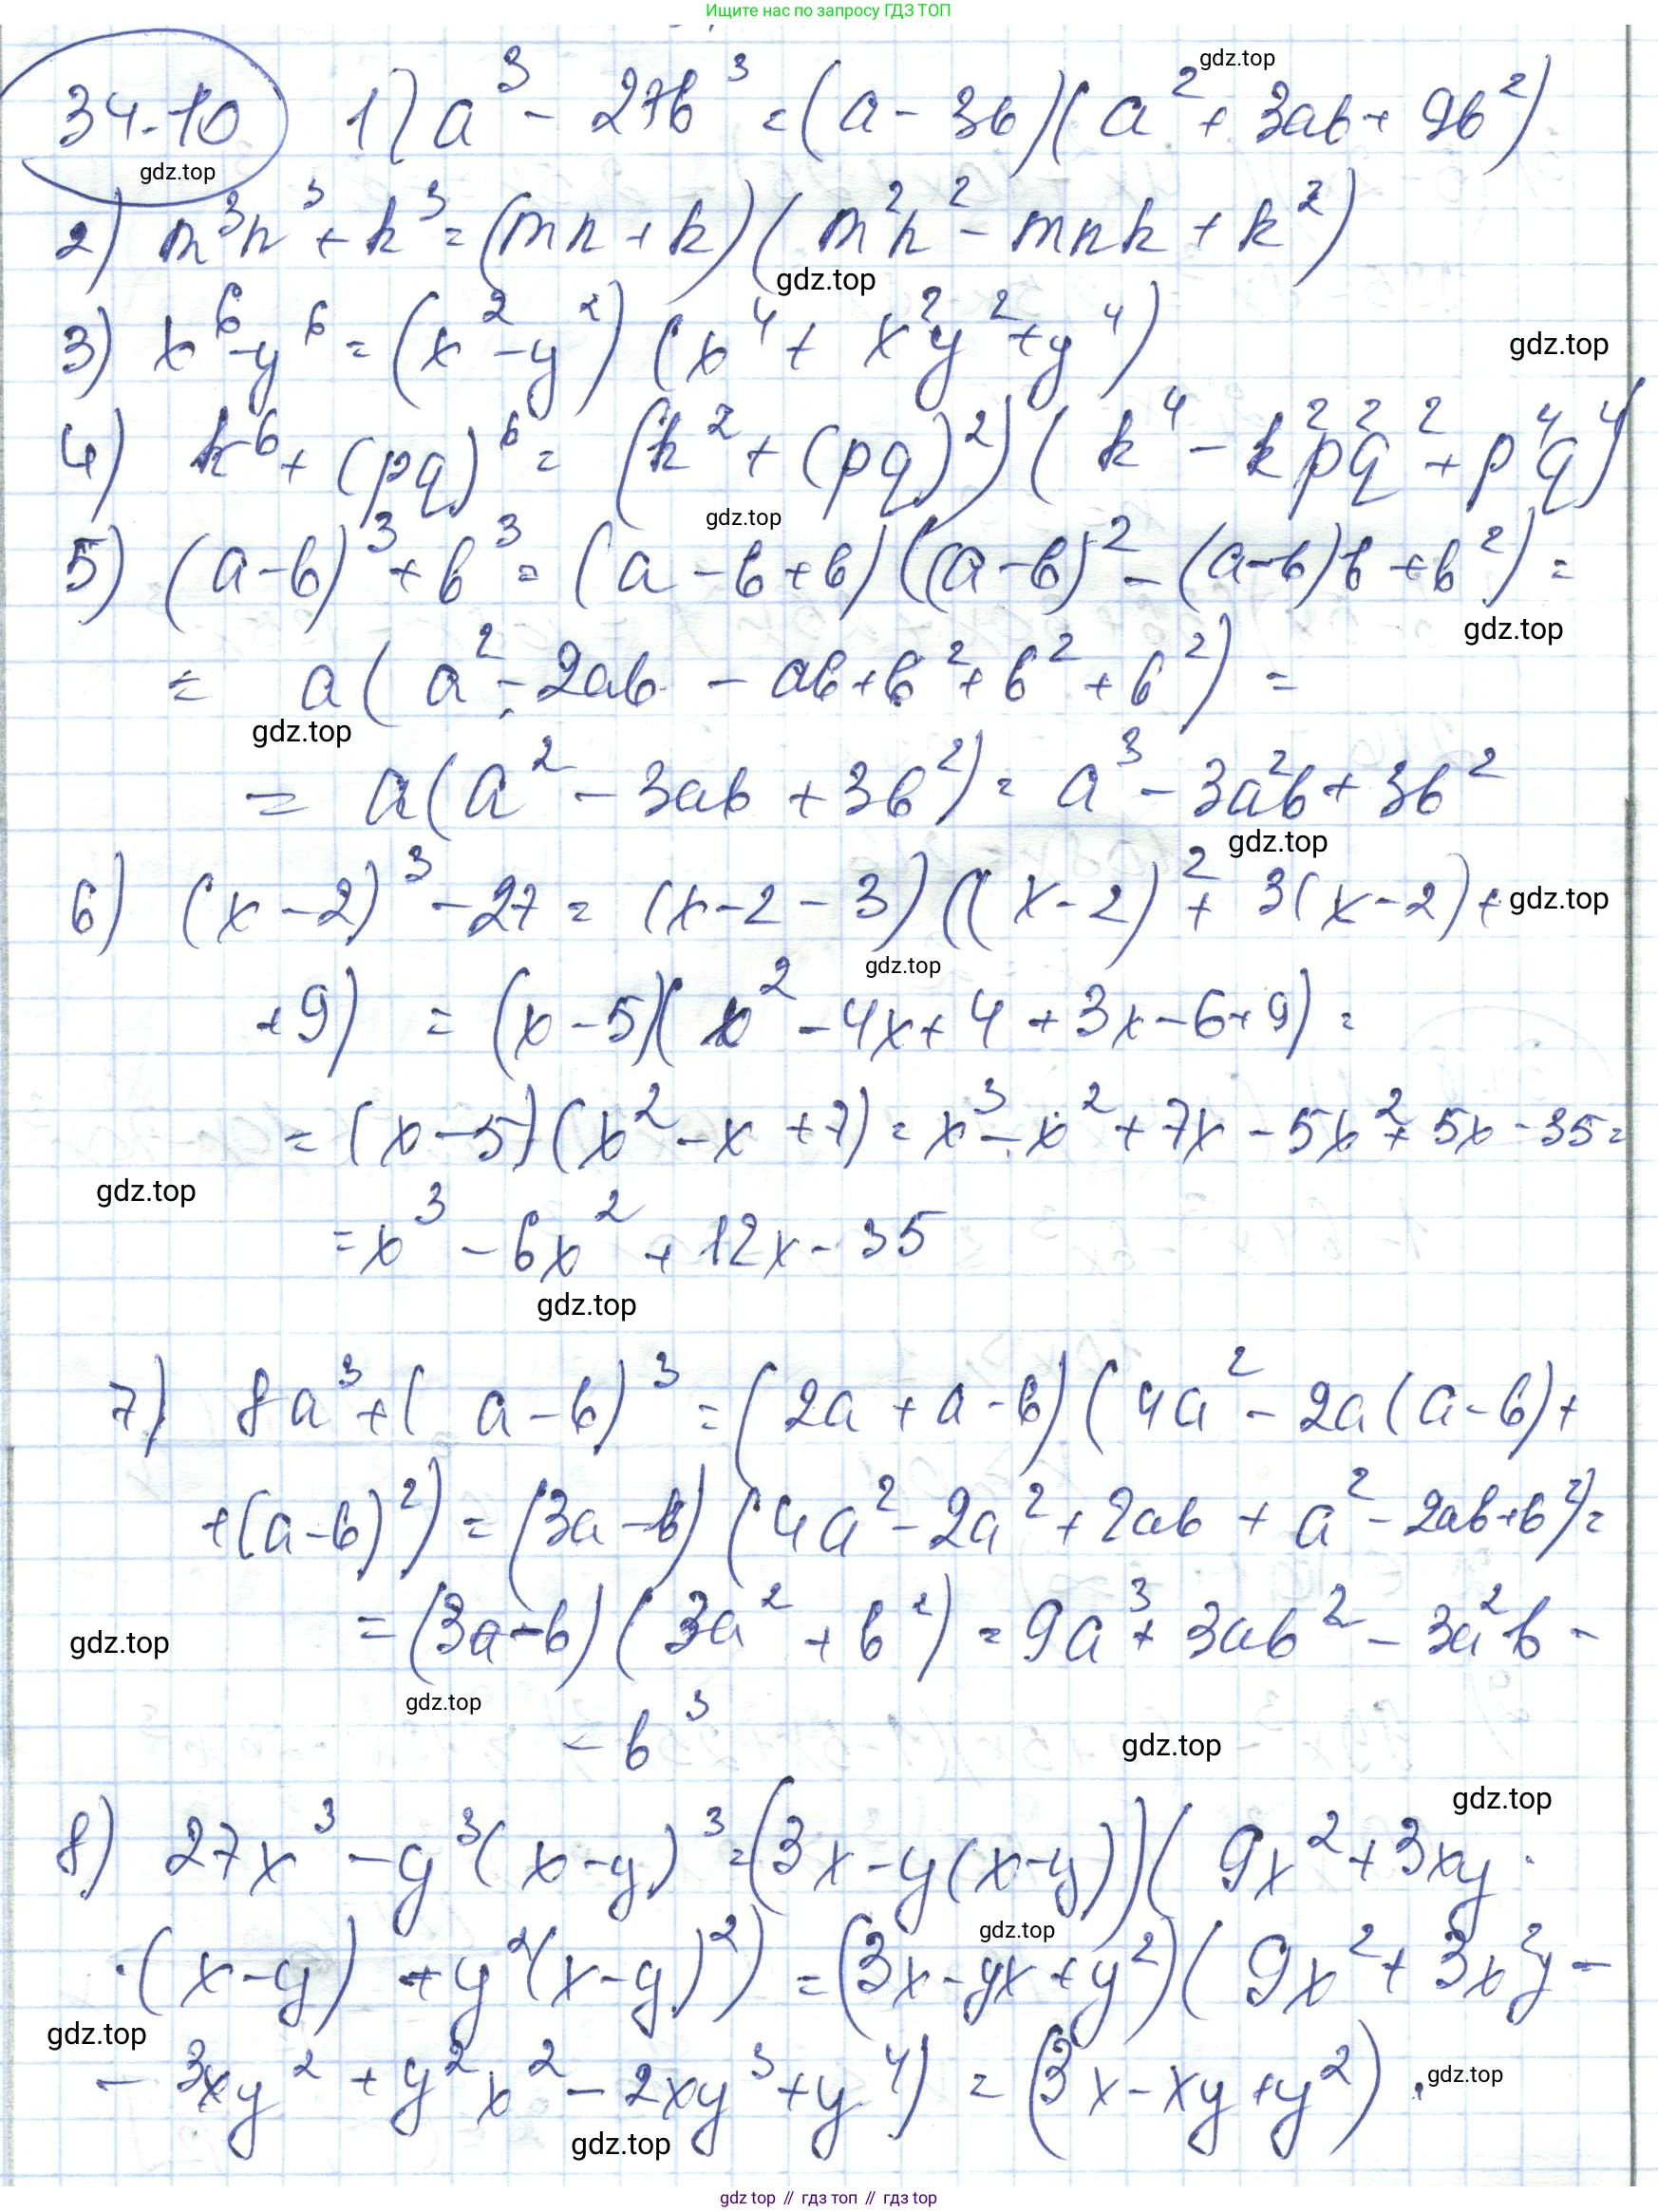 Ищите нас по запросу ГДЗ ТОП
34.10 1) a³ - 27b³ = (a - 3b)(a² + 3ab + 9b²)
gdz.top
gdz.top
2) m³n³ + k³ = (mn + k)(m²n² - mnk + k²)
gdz.top
3) x⁶ - y⁶ = (x² - y²)(x⁴ + x²y² + y⁴)
gdz.top
4) k⁶ + (pq)⁶ = (k² + (pq)²)(k⁴ - k²p²q² + p⁴q⁴)
gdz.top
5) (a-b)³ + b³ = (a - b + b)((a-b)² - (a-b)b + b²) =
gdz.top
= a(a² - 2ab - ab + b² + b² + b²) =
gdz.top
= a(a² - 3ab + 3b²) = a³ - 3a²b + 3b²
gdz.top
6) (x - 2)³ - 27 = (x - 2 - 3)((x - 2)² + 3(x - 2) +
gdz.top
gdz.top
+ 9) = (x - 5)(x² - 4x + 4 + 3x - 6 + 9) =
= (x - 5)(x² - x + 7) = x³ - x² + 7x - 5x² + 5x - 35 =
gdz.top
= x³ - 6x² + 12x - 35
gdz.top
7) 8a³ + (a - b)³ = (2a + a - b)(4a² - 2a(a - b) +
+ (a - b)²) = (3a - b)(4a² - 2a² + 2ab + a² - 2ab + b²) =
= (3a - b)(3a² + b²) = 9a³ + 3ab² - 3a²b -
gdz.top
gdz.top
- b³
gdz.top
gdz.top
8) 27x³ - y³(x - y)³ = (3x - y(x - y))(9x² + 3xy ·
gdz.top
· (x - y) + y²(x - y)²) = (3x - yx + y²)(9x² + 3x²y -
gdz.top
- 3xy² + y²x² - 2xy³ + y⁴) = (3x - xy + y²) .
gdz.top
gdz.top
gdz top // гдз топ // gdz top